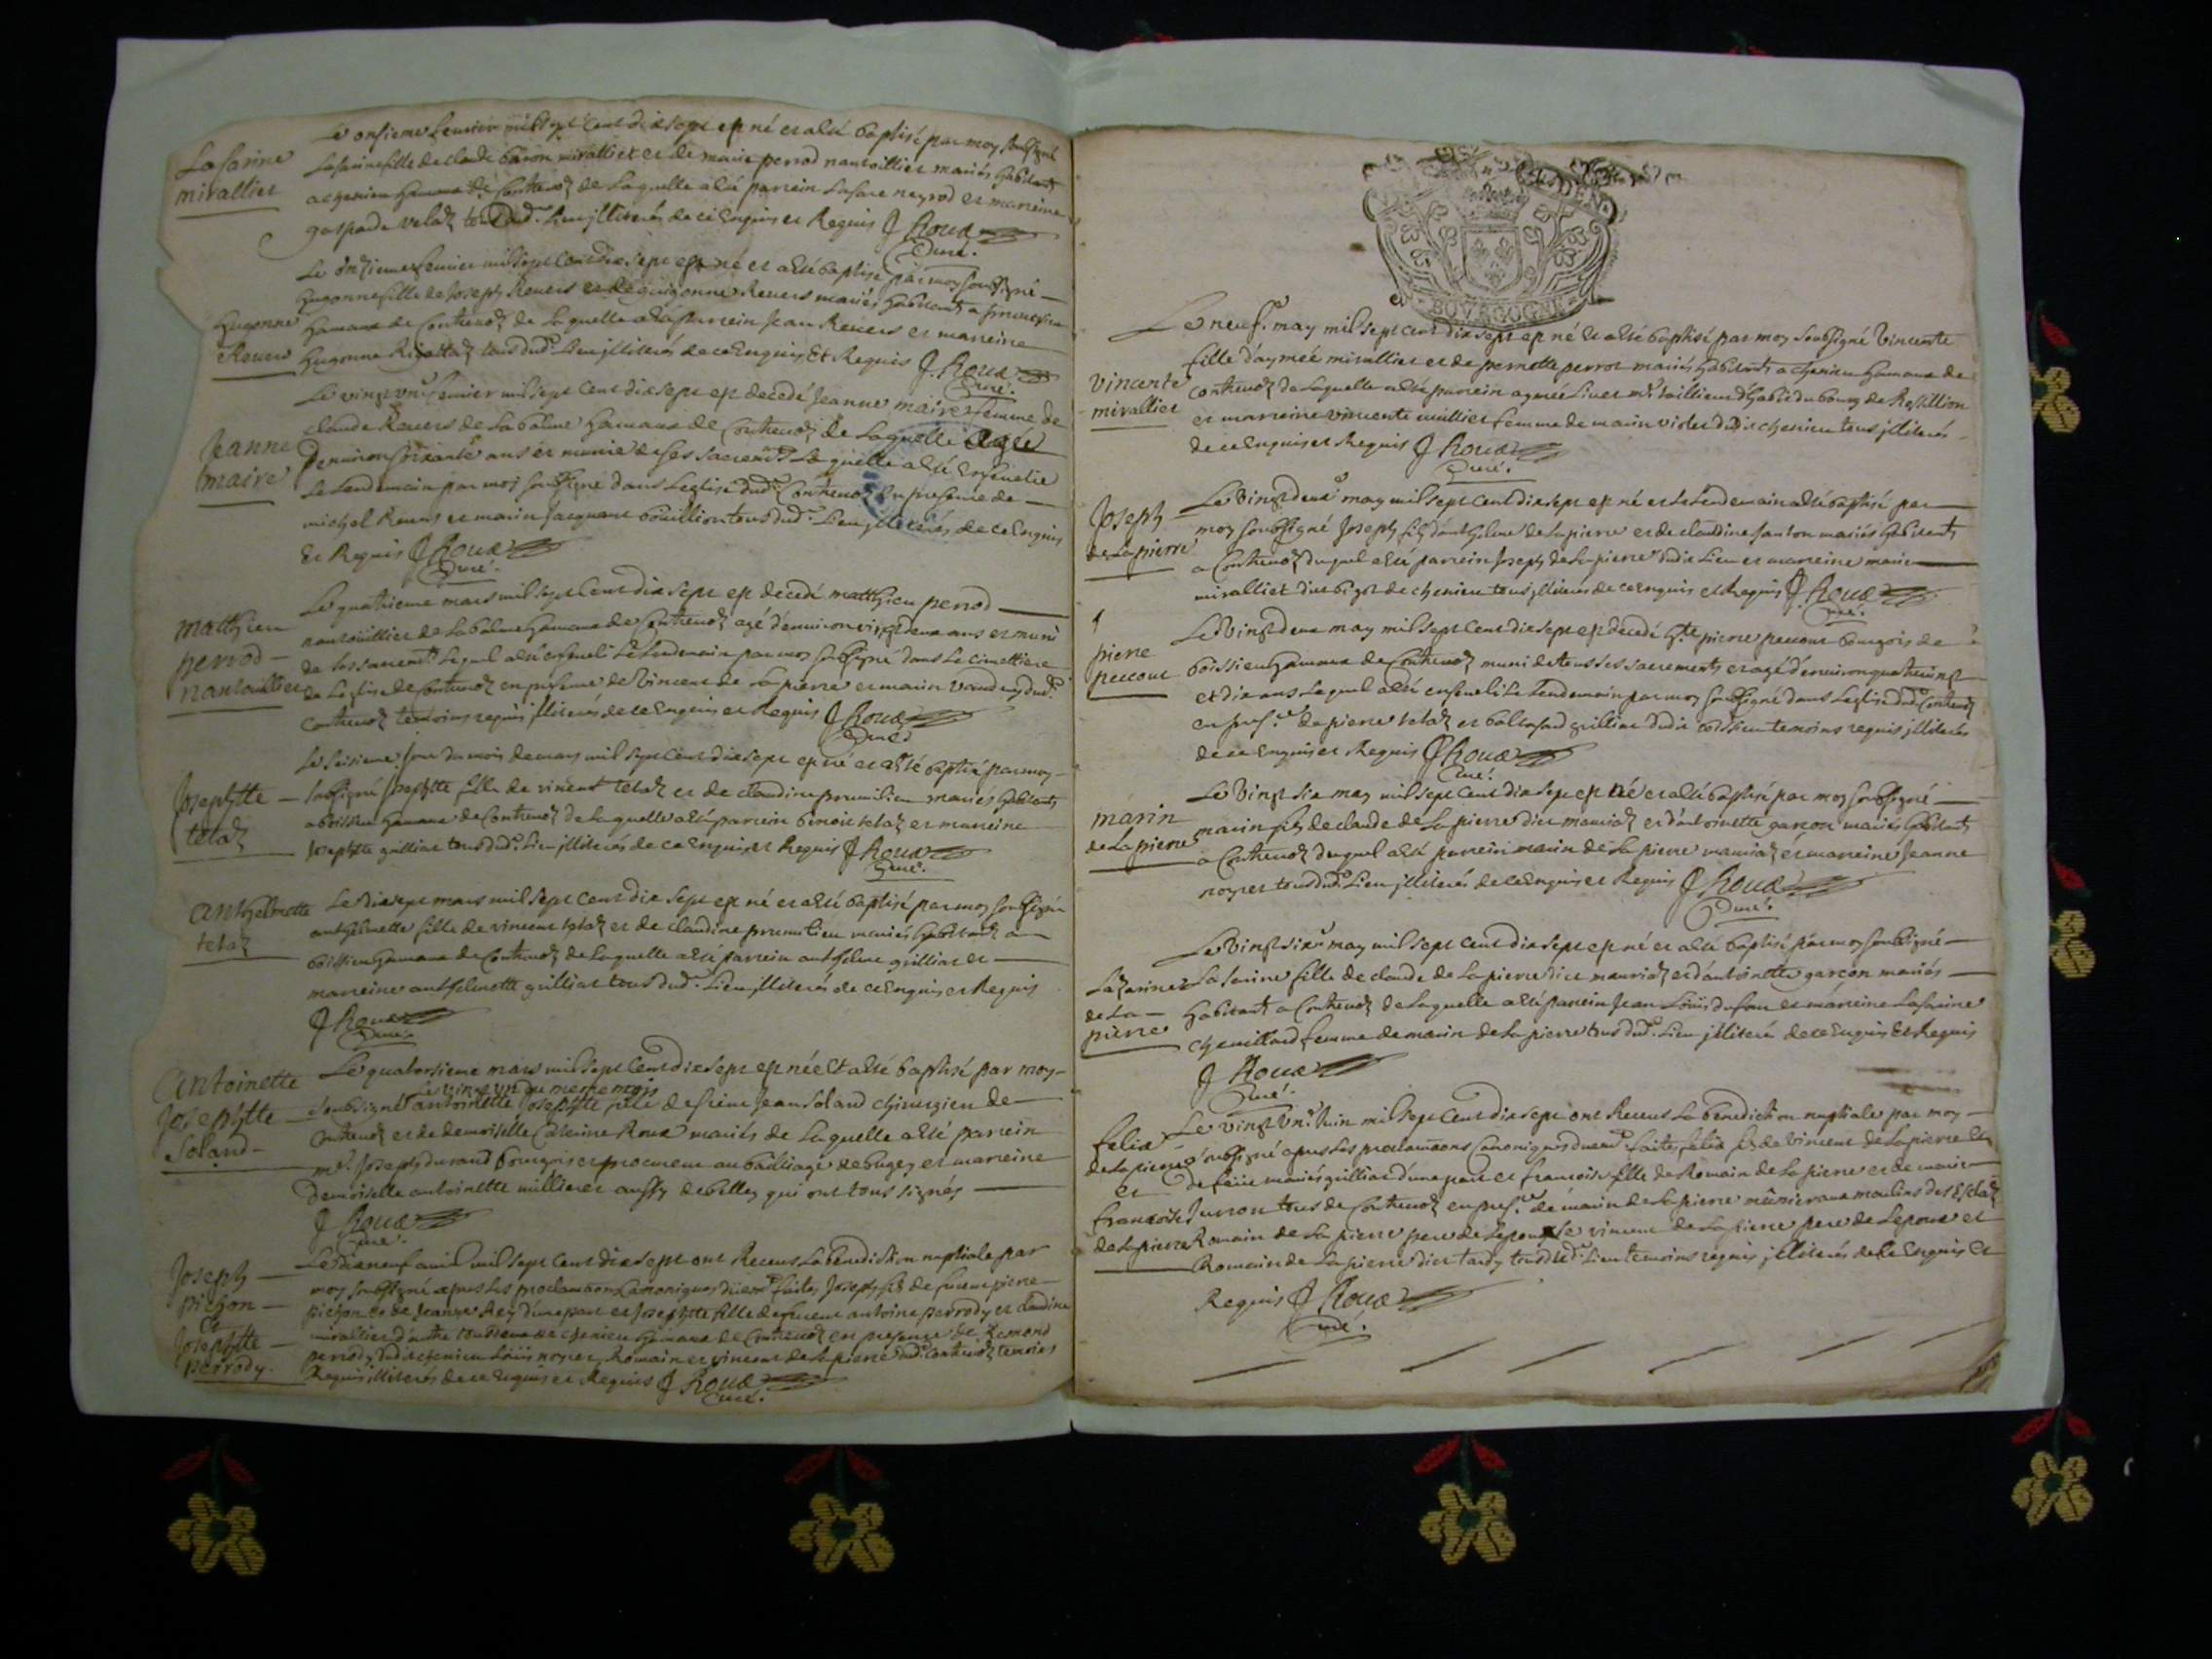 Lasarine
mirallier
Le onsieme feuvrier mil sept cent dix sept est né et a été baptisé par moy soubsigné
Lasarine fille de claude baron mirallier et de marie perrod nantoillier mariés habitants
a chenieu hameau de Contrevoz de laquelle a été parrein Lasare neyrod et marreine
gasparde velaz tous dud. lieu jlliterés de ce Enquis et Requis J Roux
Curé.
hugonne
Revers
Le onzieme feuvrier mil sept cent dix sept est né et a été baptisé par moy soubsigné
hugonne fille de Joseph Revers et de guigonne Revers mariés habitants a
hameau de Contrevoz de laquelle a été parrein Jean Revers et marreine
hugonne tous dud. lieu jlliterés de ce Enquis Et Requis J. Roux
Curé.
Jeanne
maire
Le vingt vn feuvrier mil sept cent dix sept est decedé Jeanne maire femme de
claude Revers de la balme hameau de Contrevoz de laquelle agée
denviron soixante ans et munie de ses sacrem.ts Laquelle a été Ensevelie
le Lendemain par moy soubsigné dans Leglise dud. Contrevoz En presence de
michel Revers et marin Jacquand boüillion tous dud. lieu jlliterés de ce Enquis
Et Requis J Roux
Curé.
matthieu
perrod
nantoillier
Le quatrieme mars mil sept cent dix sept est decedé matthieu perrod
nantoüillier de la balme hameau de Contrevoz agé d'environ vingt deux ans et muni
de ses sacrem.ts Lequel a été enseveli le Lendemain par moy soubsigné dans Le cimettiere
de Leglise de Contrevoz en presence de Vincent de la pierre et marin dud.
Contrevoz temoins requis jlliterés de ce Enquis et Requis J Roux
Curé
Josephtte
tetaz
Le seisieme Jour du mois de mars mil sept cent dix sept est né et a été baptisé par moy
soubsigné Josephtte fille de vincent tetaz et de claudine prumilieu mariés habitants
a boissieu hameau de Contrevoz de laquelle a été parrein benoit tetaz et marreine
Josephtte guilliat tous dud. lieu jlliterés de ce Enquis et Requis J Roux
Curé.
anthelmette
tetaz
Le dixsept mars mil sept cent dix sept est né et a été baptisé par moy soubsigné
anthelmette fille de vincent tetaz et de claudine prumilieu mariés habitants a
boissieu hameau de Contrevoz de laquelle a été parrein anthelme guilliat et
marreine anthelmette guilliat tous dud. lieu jlliterés de ce Enquis et Requis
J Roux
Curé.
Antoinette
Josephtte
Soland
Le quatorsieme mars mil sept Cent dix sept est née Et a été baptisé par moy
Le vingt vn du meme mois
soubsigné antoinette Josephtte fille de sieur Jean Soland chirurgien de
Contrevoz et de demoiselle Caterine Roux mariés de laquelle a été parrein
m.r Joseph durand bourgois et procureur au bailliage de bugey et marreine
demoiselle antoinette millieret aussy de belley qui ont tous signés
J Roux
curé.
Joseph
pichon
Et
Josephtte
perrody.
Le dixneuf avril mil sept cent dix sept ont Receus La benediction nuptiale par
moy soubsigné apres les proclamations Canoniques duem.t faites Joseph fils de feu pierre
pichon et de Jeanne Rey d'une part et Josephtte fille de feu antoine perrody et claudine
mirallier d'autre tous deux de chenieu hameau de Contrevoz en presence de Remond
perrody dudit chenieu Loüis noyret Romain et vincent de la pierre dud. Contrevoz temoins
Requis jlliterés de ce Enquis et Requis J Roux
curé.
BOVRGOGNE
vincente
mirallier
Le neuf may mil sept cent dix sept est né Et a été baptisé par moy soubsigné Vincente
fille d'aymée mirallier et de pernette perrot mariés habitants a chenieu hameau de
Contrevoz de laquelle a été parrein aymée m.e tailleur d'habit du bourg de Rossillion
et marreine vincente femme de marin dudit chenieu tous jlliterés
de ce Enquis et Requis J Roux
Curé.
Joseph
de Lapierre
Le Vingt deux may mil sept cent dix sept est né et le Lendemain a été baptisé par
moy soubsigné Joseph fils d'anthelme de la pierre et de claudine santon mariés habitants
a Contrevoz duquel a été parrein Joseph de la pierre dudit Lieu et marreine marie
mirallier dit bigot de chenieu tous jlliterés de ce Enquis et Requis J. Roux
curé.
pierre
percout
Le Vingt deux may mil sept cent dix sept est decedé h.te pierre percout bourgois de
boissieu hameau de Contrevoz muni de tous ses sacrements et agé d'environ quatre vingt
et dix ans Lequel a été enseveli Le Lendemain par moy soubsigné dans Leglise dud. Contrevoz
en pres.ce de pierre tetaz et baltasard guilliat dudit boissieu temoins requis jlliterés
de ce Enquis et Requis J Roux
Curé.
marin
de Lapierre
Le Vingt six may mil sept cent dix sept est né et a été baptisé par moy soubsigné
marin fils de claude de la pierre dict mauriaz et d'antoinette garcon mariés habitants
a Contrevoz duquel a été parrein marin de la pierre mauriaz et marreine Jeanne
noyret tous dud. Lieu jlliterés de ce Enquis et Requis J Roux
Curé.
Lazarine
de La
pierre
Le Vingt six may mil sept cent dix sept est né et a été baptisé par moy soubsigné
La sarine fille de claude de la pierre dict mauriaz et d'antoinette garcon mariés
habitants a Contrevoz de laquelle a été parrein Jean Loüis dufour et marreine Lasarine
chevillard femme de marin de la pierre tous dud. Lieu jlliterés de ce Enquis Et Requis
J Roux
Curé.
felix
de la pierre
et
francoise
de la pierre
Le Vingt vn Juin mil sept cent dix sept ont Receus La benediction nuptiale par moy
soubsigné apres Les proclamations Canoniques duem.t faites felix fils de Vincent de la pierre Et
de feüe marie guilliat d'une part et francoise fille de Romain de la pierre et de marie
Juron tous de Contrevoz en pres.ce de marin de la pierre mûnier aux moulins des
Romain de la pierre pere de Lepouse vincent de la pierre pere de Lepoux et
Romain de la pierre dict tardy tous dud. Lieu temoins requis jlliterés de Ce Enquis Et
Requis J Roux
curé.